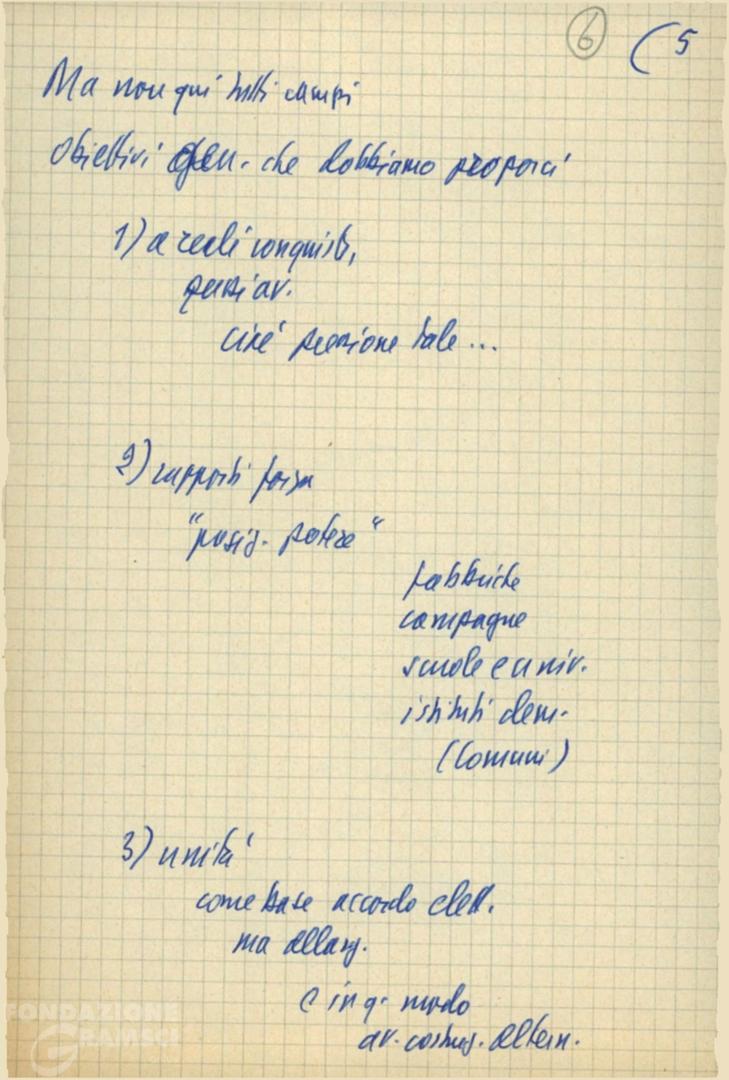 6 (5
Ma non qui tutti campi
Obiettivi gen. che dobbiamo proporci
1) a reali conquiste,
passi av.
cioè pressione tale ...
2) rapporti forza
"posiz. potere"
fabbriche
campagne
scuole e univ.
istituti dem.
(Comuni)
3) unità
come base accordo elett.
ma allarg.
e in q. modo
av. costruz. altern.
FONDAZIONE
GRAMSCI